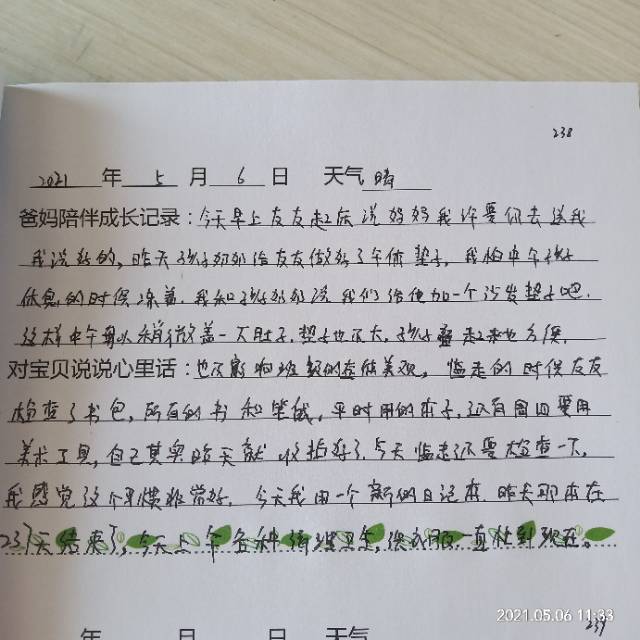 238
2021 年 5 月 6 日 天气 晴
爸妈陪伴成长记录：今天早上友友起床说妈妈我许要你去送我
我说好的，昨天孙子奶奶给友友做好了午休垫子，我怕中午孩子
休息的时候凉着，我和孙子奶奶说我们给他加一个沙发垫子吧，
这样中午可以稍微盖一下肚子，垫子也不大，孩子叠起来也方便，
对宝贝说说心里话：也不影响班级的整体美观，临走的时候友友
检查了书包，所有的书和笔袋，平时用的本子，还有周四要用
美术工具，自己其实昨天就收拾好了今天临走还要检查一下，
我感觉这个习惯非常好，今天我用一个新的日记本，昨天那本在
237天结束了，今天上午各种 卫生，供 一直忙到现在。
年 月 日 天气
239
2021.05.06 11:33